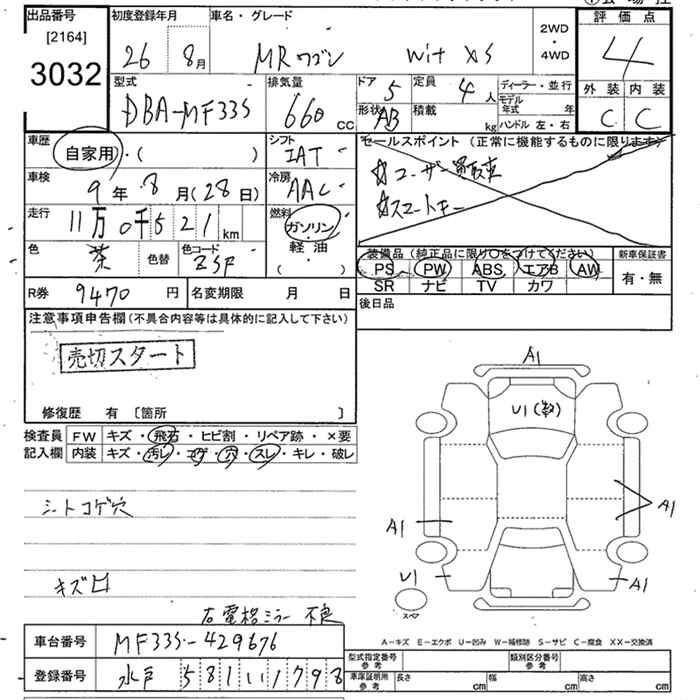 出品番号 初度登録年月 車名・グレード 2WD・4WD 評価点
[2164]
3032 26 8月 MRワゴン Wit XS 4
型式 排気量 ドア 5 定員 4人 ディーラー・並行 外装 内装
DBA-MF33S 660cc 形状 AB 積載 kg モデル年式 年 C C
ハンドル 左・右
車歴 自家用・( ) シフト IAT セールスポイント (正常に機能するものに限ります)
車検 9年8月(28日) 冷房 AAC ☆ユーザー買取車
走行 11万0千521km 燃料 ガソリン・軽油( ・ ) ☆スマートキー
色 茶 色替 色コード ZSF 装備品 (純正品に限り○をつけてください) 新車保証書
PS PW ABS エアB AW 有・無
SR ナビ TV カワ
R券 9470円 名変期限 月 日 後日品
注意事項申告欄(不具合内容等は具体的に記入して下さい)
売切スタート
修復歴 有〔箇所 〕
検査員記入欄 FW キズ・飛石・ヒビ割・リペア跡・×要
内装 キズ・汚レ・コゲ・穴・スレ・キレ・破レ
シートコゲ穴
キズ
右電格ミラー不良
A1
U1
A1
A1
U1
A1
スペア
A-キズ E-エクボ U-凹み W-補修跡 S-サビ C-腐食 XX-交換済
車台番号 MF33S-429676 型式指定番号 参考 類別区分番号 参考
登録番号 水戸 581 1798 車庫証明用 参考 長さ cm 幅 cm 高さ cm